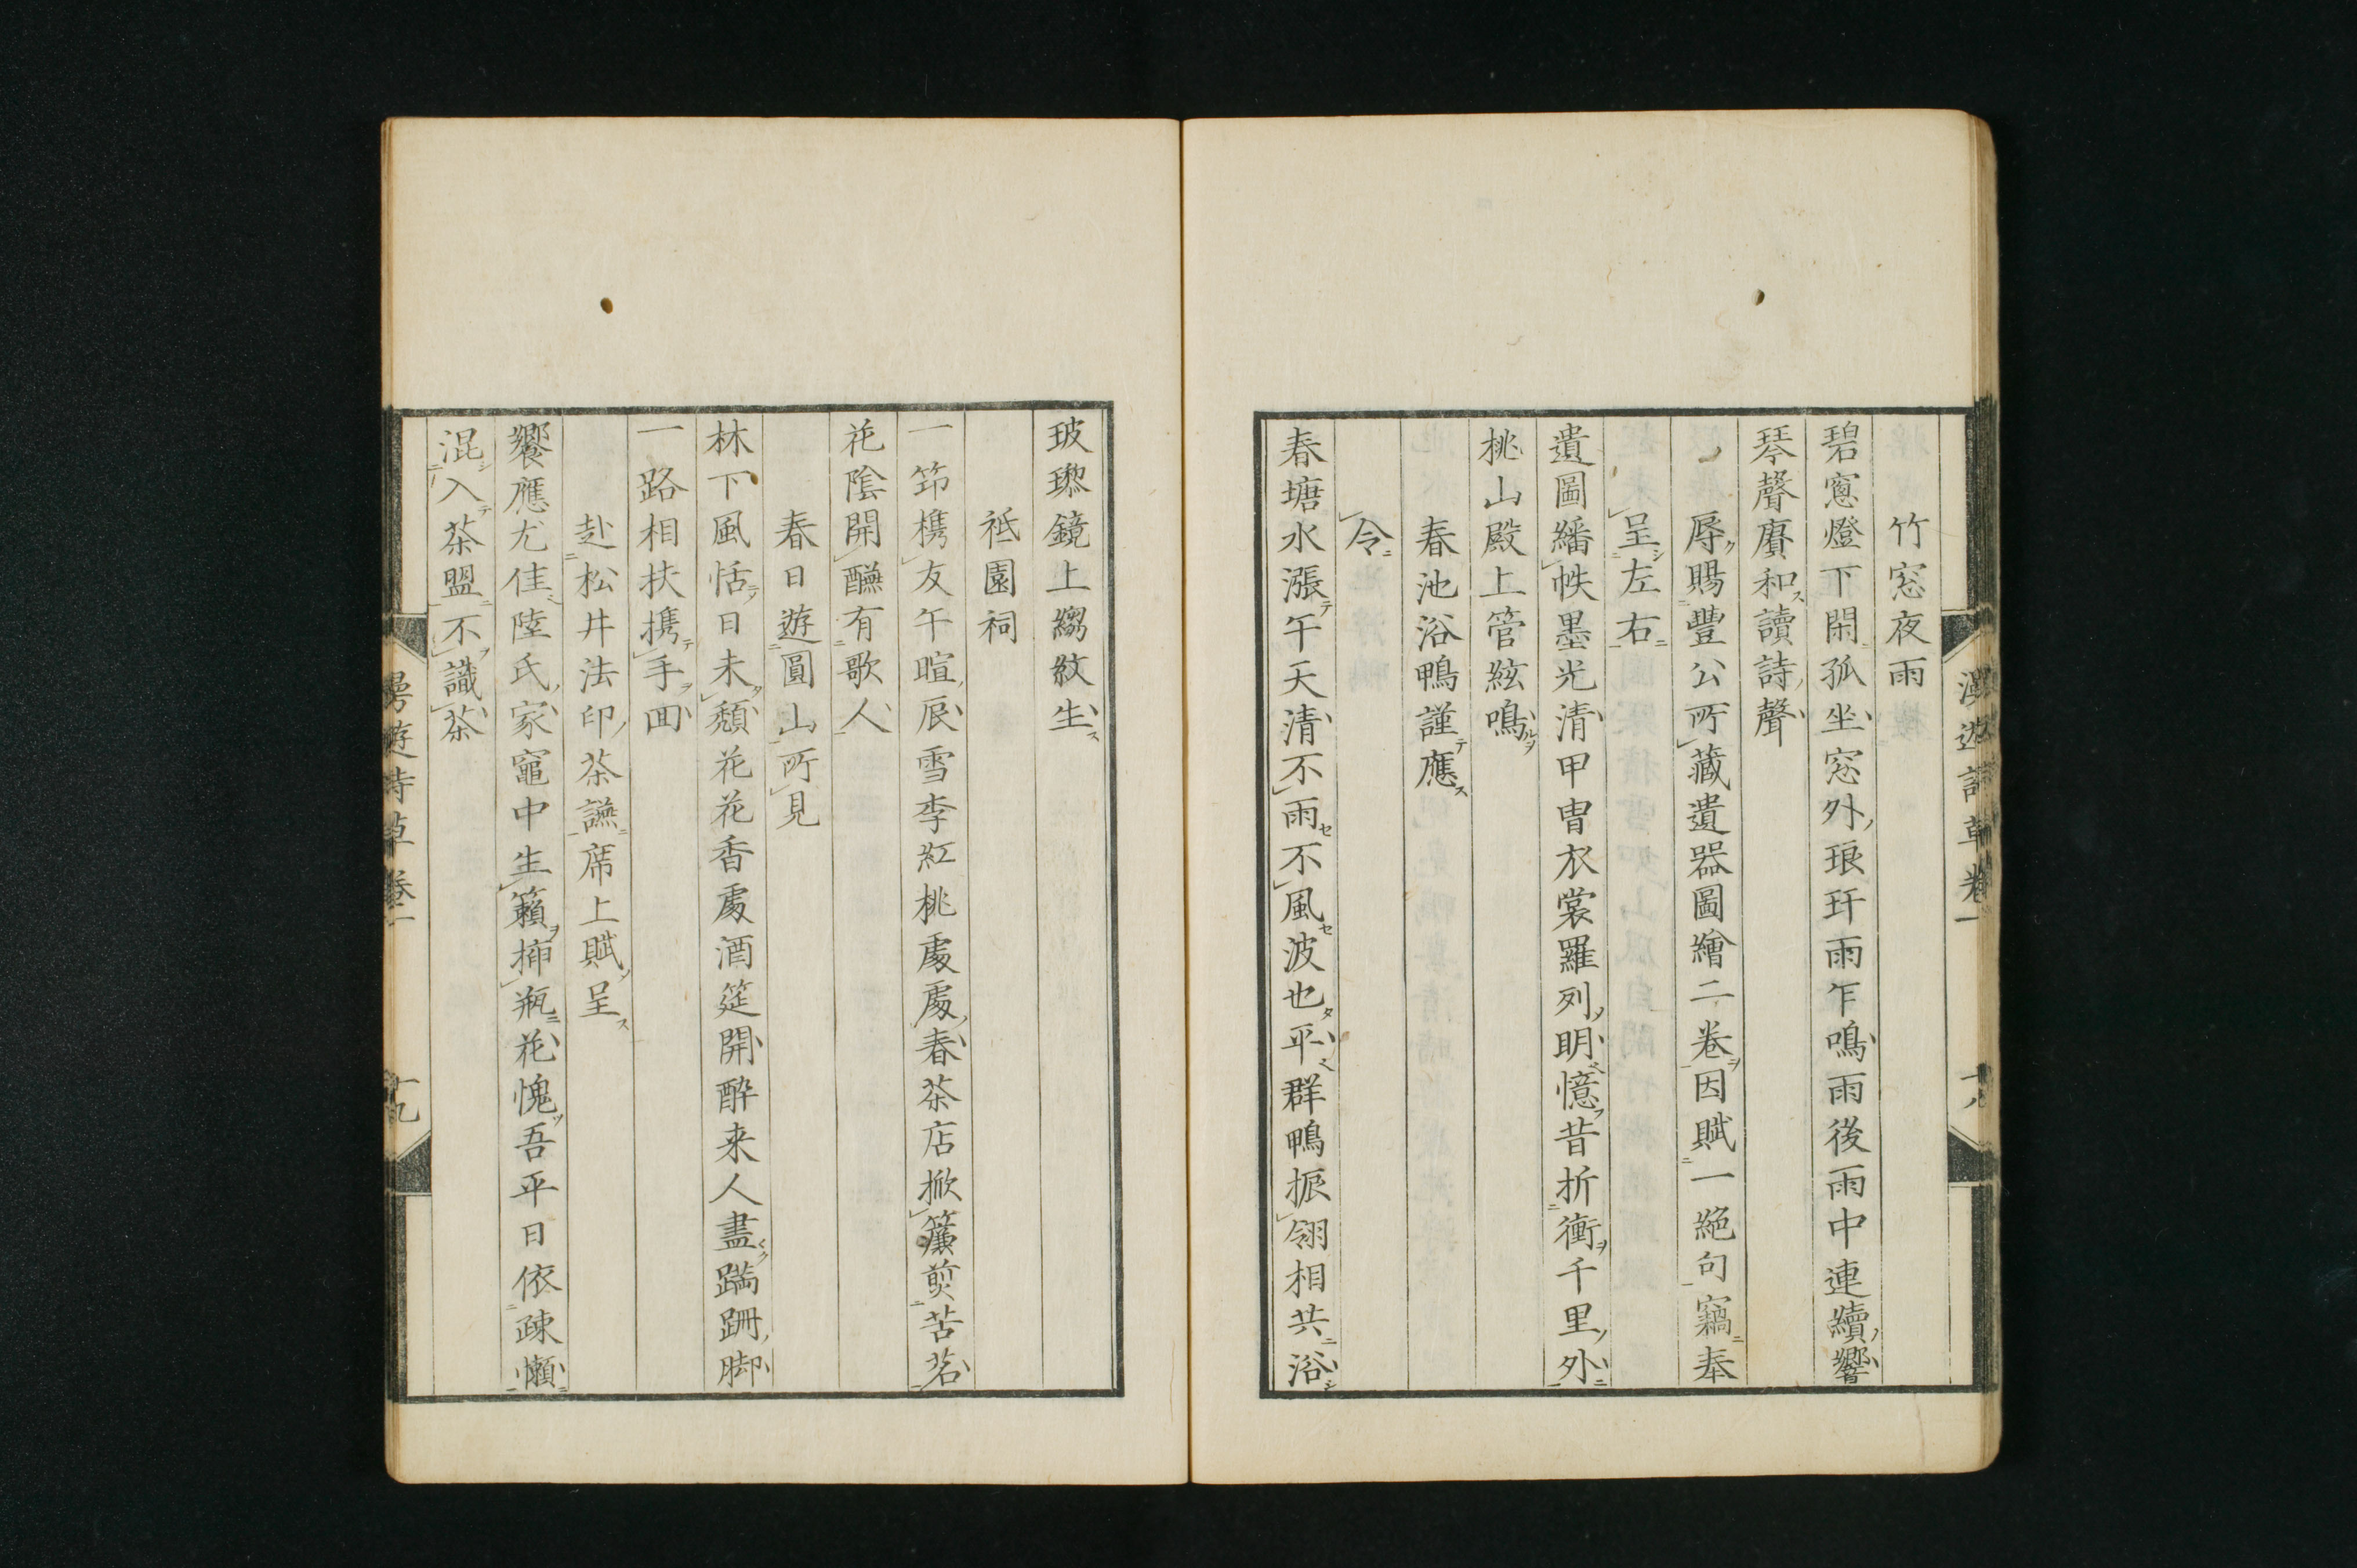 竹窓夜雨
碧窻燈下閑孤坐窓外琅玕雨乍鳴雨後雨中連續響
琴聲賡和讀詩聲
辱賜豐公所藏遺器圖繪二卷因賦一絶句竊奉
呈左右
遺圖繙帙墨光清甲冑衣裳羅列明憶昔折衝千里外
桃山殿上管絃鳴
春池浴鴨謹應
令
春塘水漲午天清不雨不風波也平群鴨振翎相共浴
漫遊詩草卷一
十八
玻瓈鏡上縐紋生
祗園祠
一笻携友午暄辰雪李紅桃處處春茶店掀簾煎苦茗
花陰開醼有歌人
春日遊圓山所見
林下風恬日未頽花花香處酒筵開酔来人盡蹣跚脚
一路相扶攜手回
赴松井法印茶讌席上賦呈
饗應尤佳陸氏家竈中生籟揷瓶花愧吾平日依疎懶
混入茶盟不識茶
漫遊詩草卷一
十九